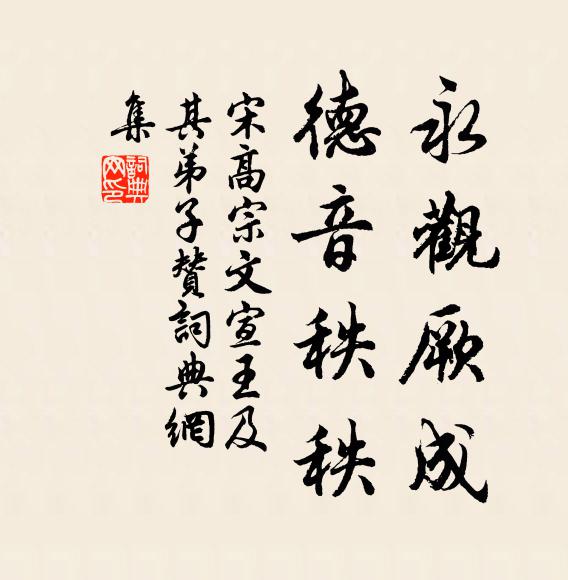 永觀厥成
德音秩秩
宋高宗文宣王及
其弟子贊詞典網
集
詞典网印